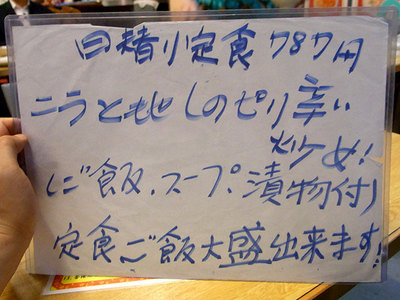 日替り定食 787円
ニラともやしのピリ辛い
炒め!
(ご飯.スープ.漬物付)
定食ご飯大盛出来ます!